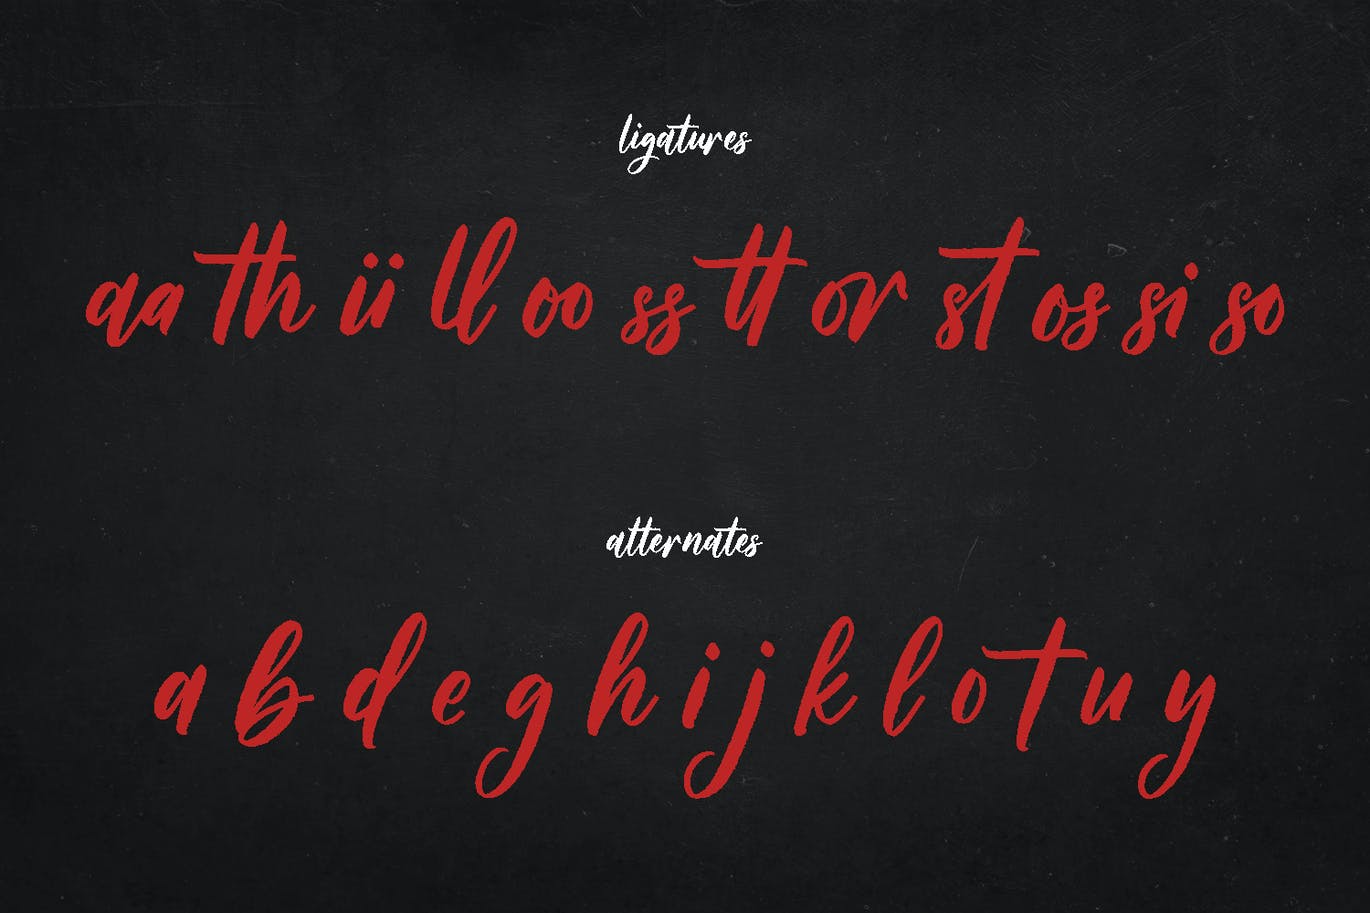 ligatures
aa th ii ll oo ss tt or st os si so
alternates
a b d e g h i j k l o t u y